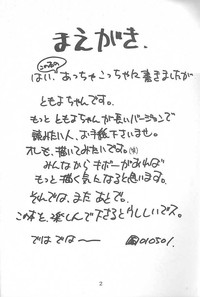 まえがき.
この本の
はい、あっちゃこっちゃに書きましたが
ともよちゃんです。
もっと ともよちゃんが長いバージョンで
読みたい人、お手紙下さいませ。
オレも、描いてみたいです。(笑)
みんなから キボーがあれば
もっと描く気になると思います。
それでは、また あとで。
この本を、楽しんで下さるとうれしいデス。
ではでは〜
010501.
2